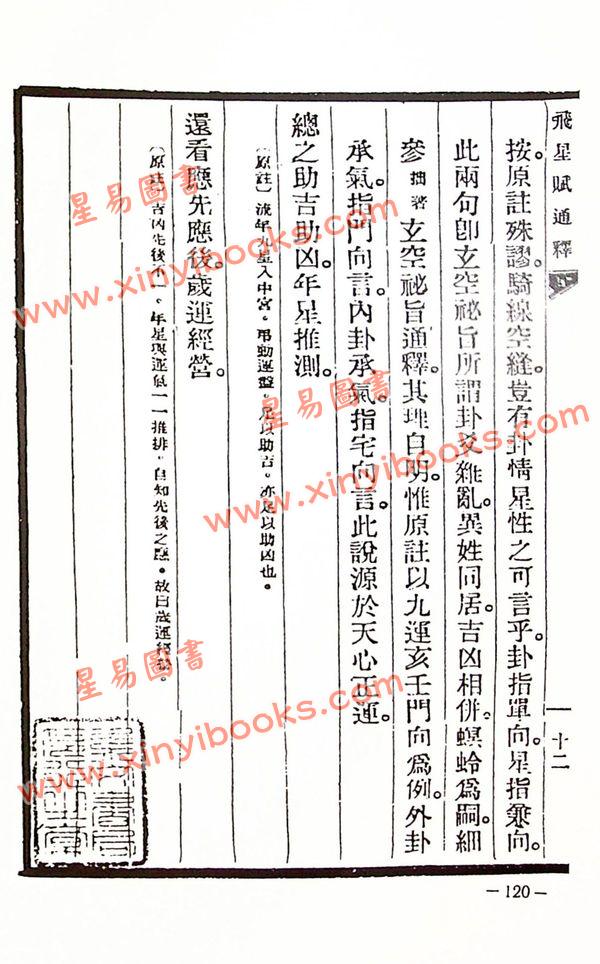 飛星賦通釋
十二
按。原註殊謬。騎線空縫。豈有卦情星性之可言乎。卦指單向。星指兼向。
此兩句卽玄空祕旨所謂卦爻雜亂。異姓同居。吉凶相併。螟蛉爲嗣。細
參拙著玄空祕旨通釋。其理自明。惟原註以九運亥壬門向爲例。外卦
承氣。指門向言。內卦承氣。指宅向言。此說源於天心正運。
總之助吉助凶。年星推測。
(原註)流年九星入中宮。吊動運盤。足以助吉。亦足以助凶也。
還看應先應後。歲運經營。
(原註)吉凶先後不一。年星與運氣一一推排。自知先後之應。故曰歲運經營。
-120-
星易圖書
www.xinyibooks.com
星易圖書
www.xinyibooks.com
星易圖書
www.xinyibooks.com